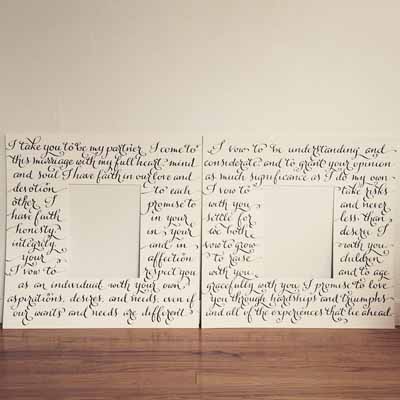 I take you to be my partner. I come to
this marriage with my full heart, mind
and soul. I have faith in our love and
devotion to each
other. I promise to
have faith in your
honesty, in your
integrity, and in
your affection.
I vow to respect you
as an individual with your own
aspirations, desires, and needs, even if
our wants and needs are different.
I vow to be understanding and
considerate, and to grant your opinion
as much significance as I do my own.
I vow to take risks
with you and never
settle for less than
we both deserve. I
vow to grow with you,
to raise children
with you, and to age
gracefully with you. I promise to love
you through hardships and triumphs
and all of the experiences that lie ahead.